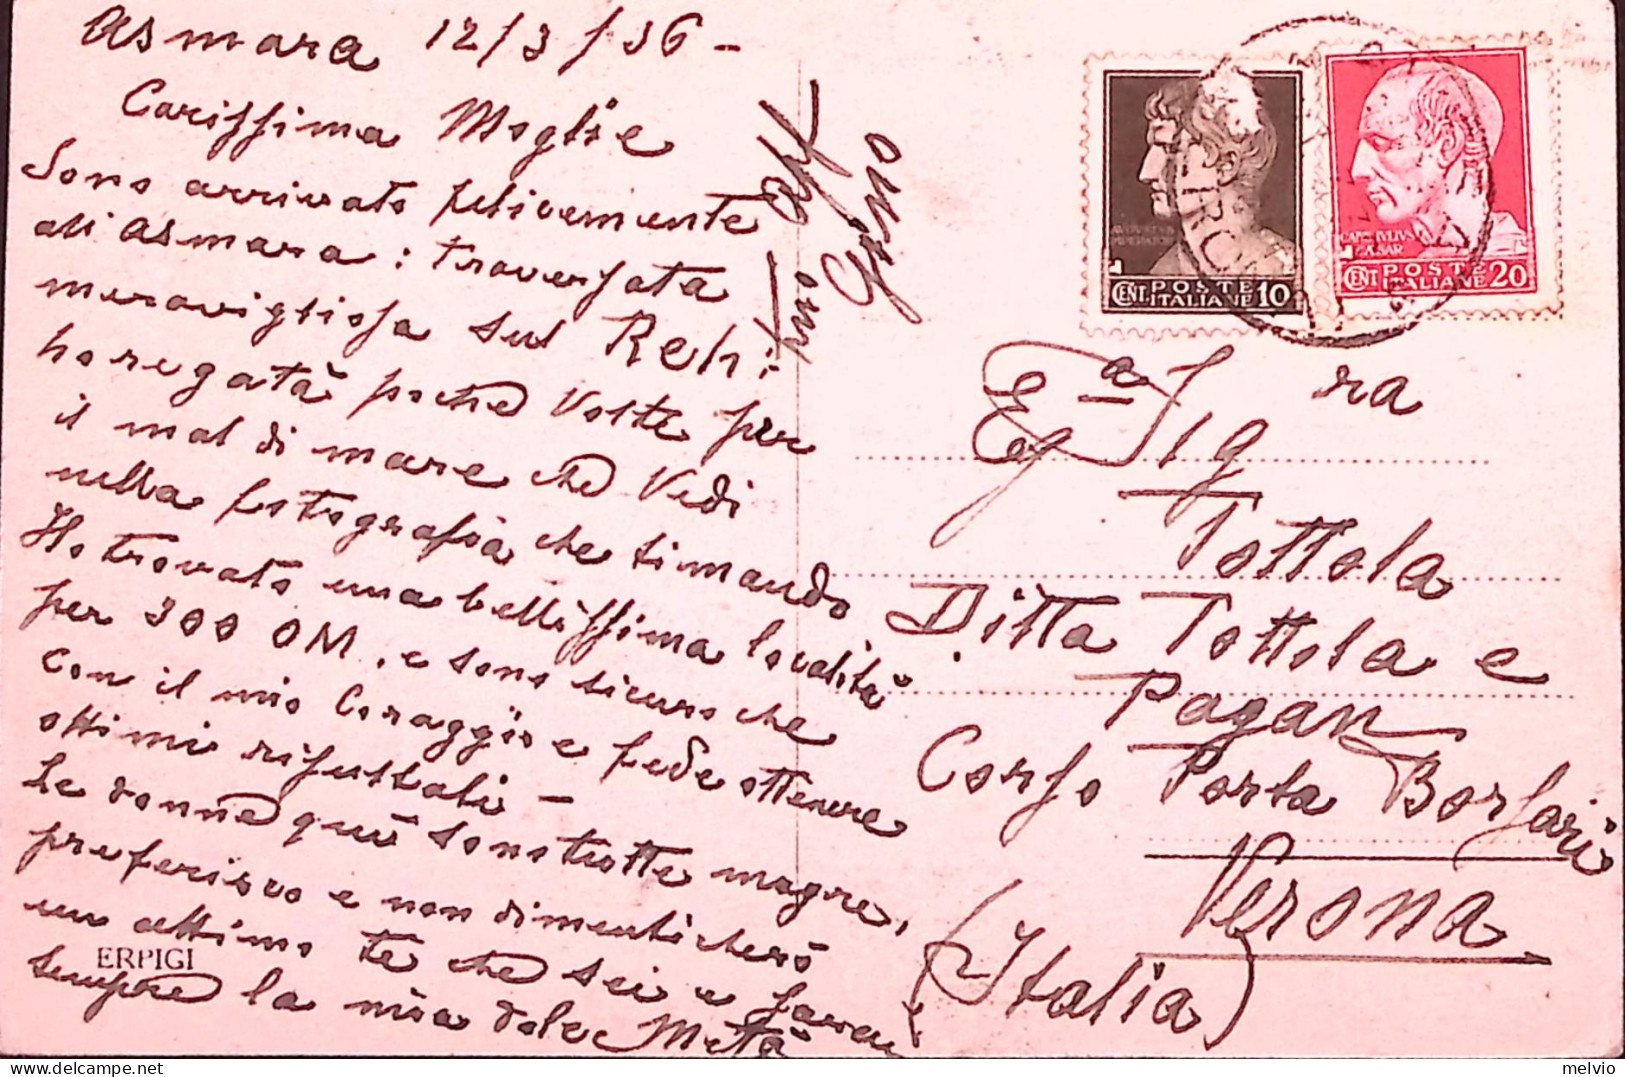 Asmara 12/3/36 -
Carissima Moglie
Sono arrivato felicemente
ad Asmara: traversata
meravigliosa sul Reh:
ho regatà poche volte per
il mal di mare che vedi
nella fotografia che ti mando
Ho trovato una bellissima località
per 300 OM. e sono sicuro che
con il mio coraggio e fede ottenere
ottimi risultati -
Le donne quì sono trotte magre,
preferisco e non dimenticherò
un attimo te che sei e sarai
sempre la mia dolce Metà
tuo aff
Gino
ERPIGI
CENT. POSTE ITALIANE 10
CAIVS IVLIVS CAESAR
CENT. POSTE ITALIANE 20
Eg.a Sig.ra
Tottola
Ditta Tottola e
Pagan
Corso Porta Borsari
Verona
(Italia)
melvio